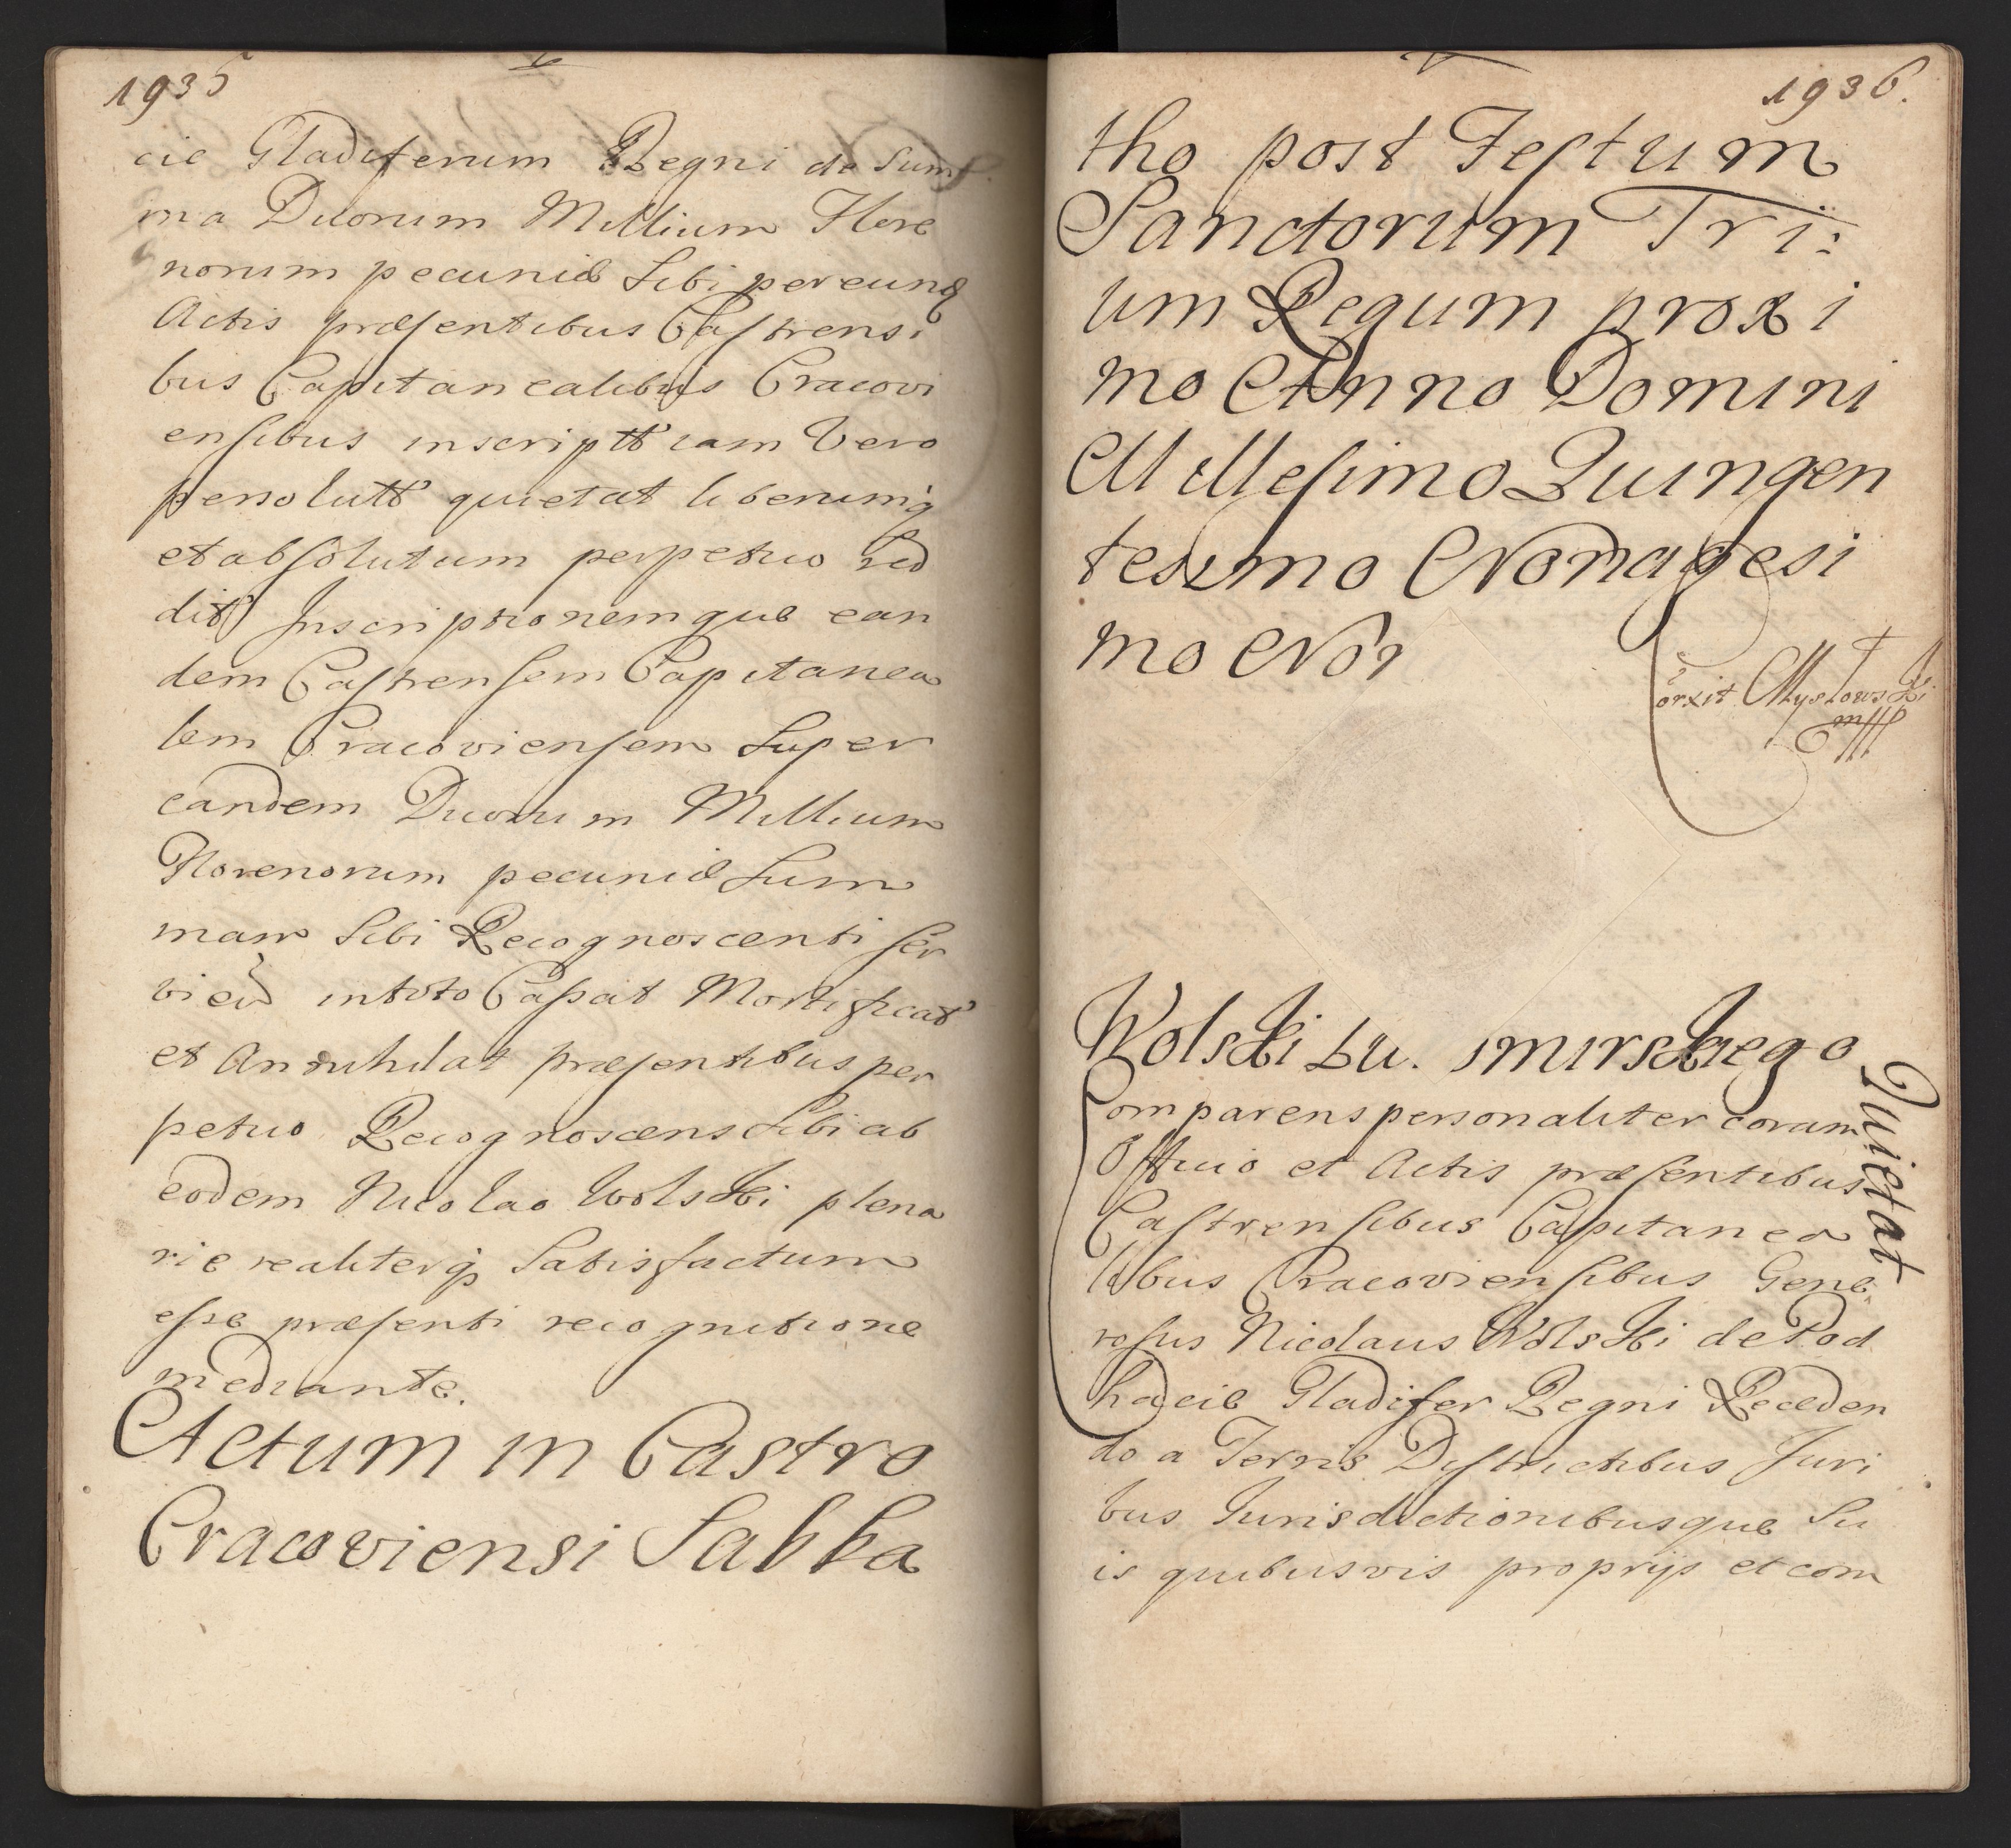 1935
cie Gladiferum Regni de Sum
ma Duorum Millium Flore
norum pecuniæ Sibi per eundq
Actis præsentibus Castrensi
bus Capitanealibus Cracovi
ensibus inscriptt' iam Vero
persolutt' quietat liberumq
et absolutum perpetuo red
dit Inscriptionemque ean
dem Castrensem Capitanea
lem Cracoviensem Super
eandem Duorum Millium
Florenorum pecuniæ Sum
mam Sibi Recognoscenti ser
vien intoto Cassat Mortificat
et Annihilat præsentibus per
petuo Recognoscens Sibi ab
eodem Nicolao Wolski plena
rie realiterq Satisfactum
esse præsenti recognitione
mediante.
Actum in Castro
Cracoviensi Sabba
1936.
tho post Festum
Sanctorum Tri:
um Regum proxi
mo Anno Domini
Millesimo Quingen
tesimo Nonagesi
mo No'
Corxit Mysłowski
mpp
Wolski Lu. smirskiego
Quietat
Comparens personaliter coram
Officio et Actis præsentibus
Castrensibus Capitanea
libus Cracoviensibus Gene
rosus Nicolaus Wolski de Pod
hacie Gladifer Regni Receden
do a Terris Districtibus Juri
bus Iurisdictionibusque Su
is quibusvis proprijs et com